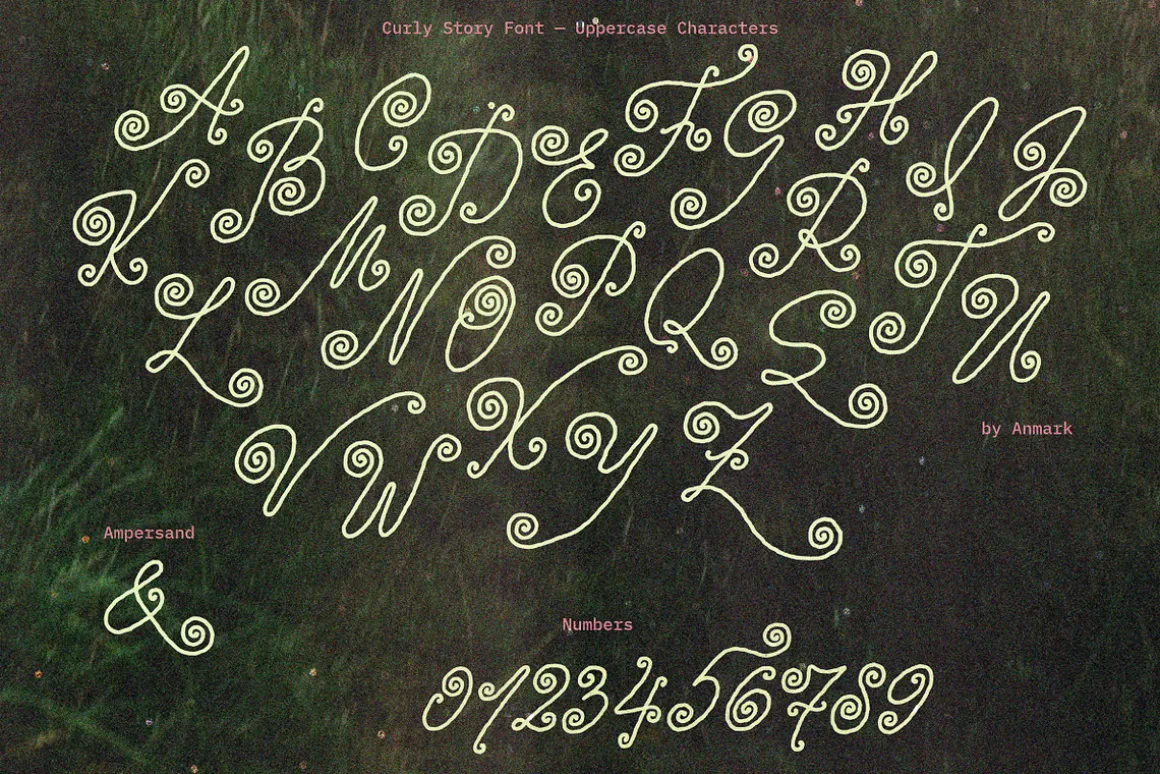 Curly Story Font — Uppercase Characters
A B C D E F G H I J
K L M N O P Q R S T U
V W X Y Z
by Anmark
Ampersand
&
Numbers
0123456789